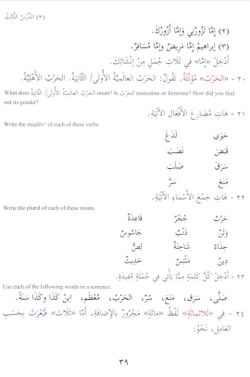 (٣) الدَّرْسُ الثَّالِثُ
(٢) إِمَّا تَزُورُنِي وَإِمَّا أَزُورُكَ.
(٣) إِبراهيمُ إِمَّا مَرِيضٌ وَإِمَّا مُسَافِرٌ.
أَدْخِلْ «إِمَّا» فِي ثَلاثِ جُمَلٍ مِنْ إِنْشَائِكَ.
٢٠ - «الحَرْبُ» مُؤَنَّثَةٌ. نَقُولُ: الحَرْبُ العَالَمِيَّةُ الأُولَى/ الثَّانِيَةُ، الحَرْبُ الأَهْلِيَّةُ.
What does الحَرْبُ العَالَمِيَّةُ الأُولَى/ الثَّانِيَةُ mean? Is الحَرْبُ masculine or feminine? How did you find out its gender?
٢١ - هَاتِ مُضَارِعَ الأَفْعَالِ الآتِيَةِ.
Write the مضارع of each of these verbs.
حَوَى لَدَغَ
قَبَضَ نَصَبَ
سَرَقَ صَلَبَ
مَنَعَ سَرَّ
٢٢ - هَاتِ جَمْعَ الأَسْمَاءِ الآتِيَةِ.
Write the plural of each of these nouns.
حَرْبٌ جُحْرٌ قَاعِدَةٌ
وَثَنٌ ذَنْبٌ جَاسُوسٌ
حِذَاءٌ شَاحِنَةٌ لِصٌّ
دِينٌ مَلْبَسٌ حَدِيثٌ
٢٣ - أَدْخِلْ كُلَّ كَلِمَةٍ مِمَّا يَأْتِي فِي جُمْلَةٍ مُفِيدَةٍ.
Use each of the following words in a sentence:
صَلَّى، سَرَقَ، مَنَعَ، سَرَّ، الحَرْبُ، مُعْظَم، اِبْنُ كَذَا وَكَذَا سَنَةً.
٢٤ - فِي «ثَلاثِمِائَةٍ» لَفْظُ «مِائَةٍ» مَجْرُورٌ بِالإِضَافَةِ، أَمَّا «ثَلاث» فَيُعْرَبُ بِحَسَبِ
العَامِلِ، نَحْوُ:
٣٩